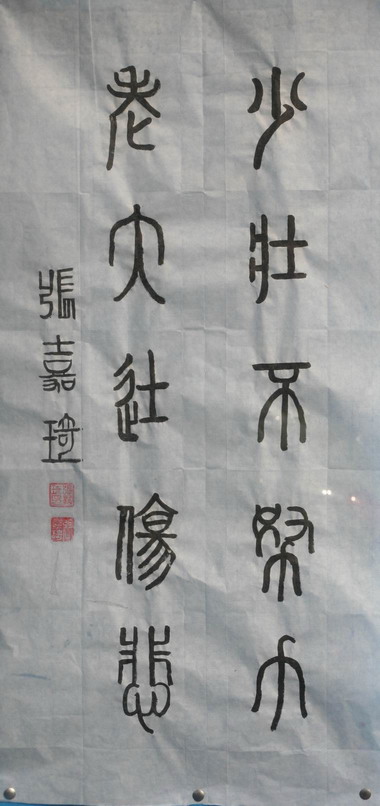 少壯不努力
老大徒傷悲
張嘉琦